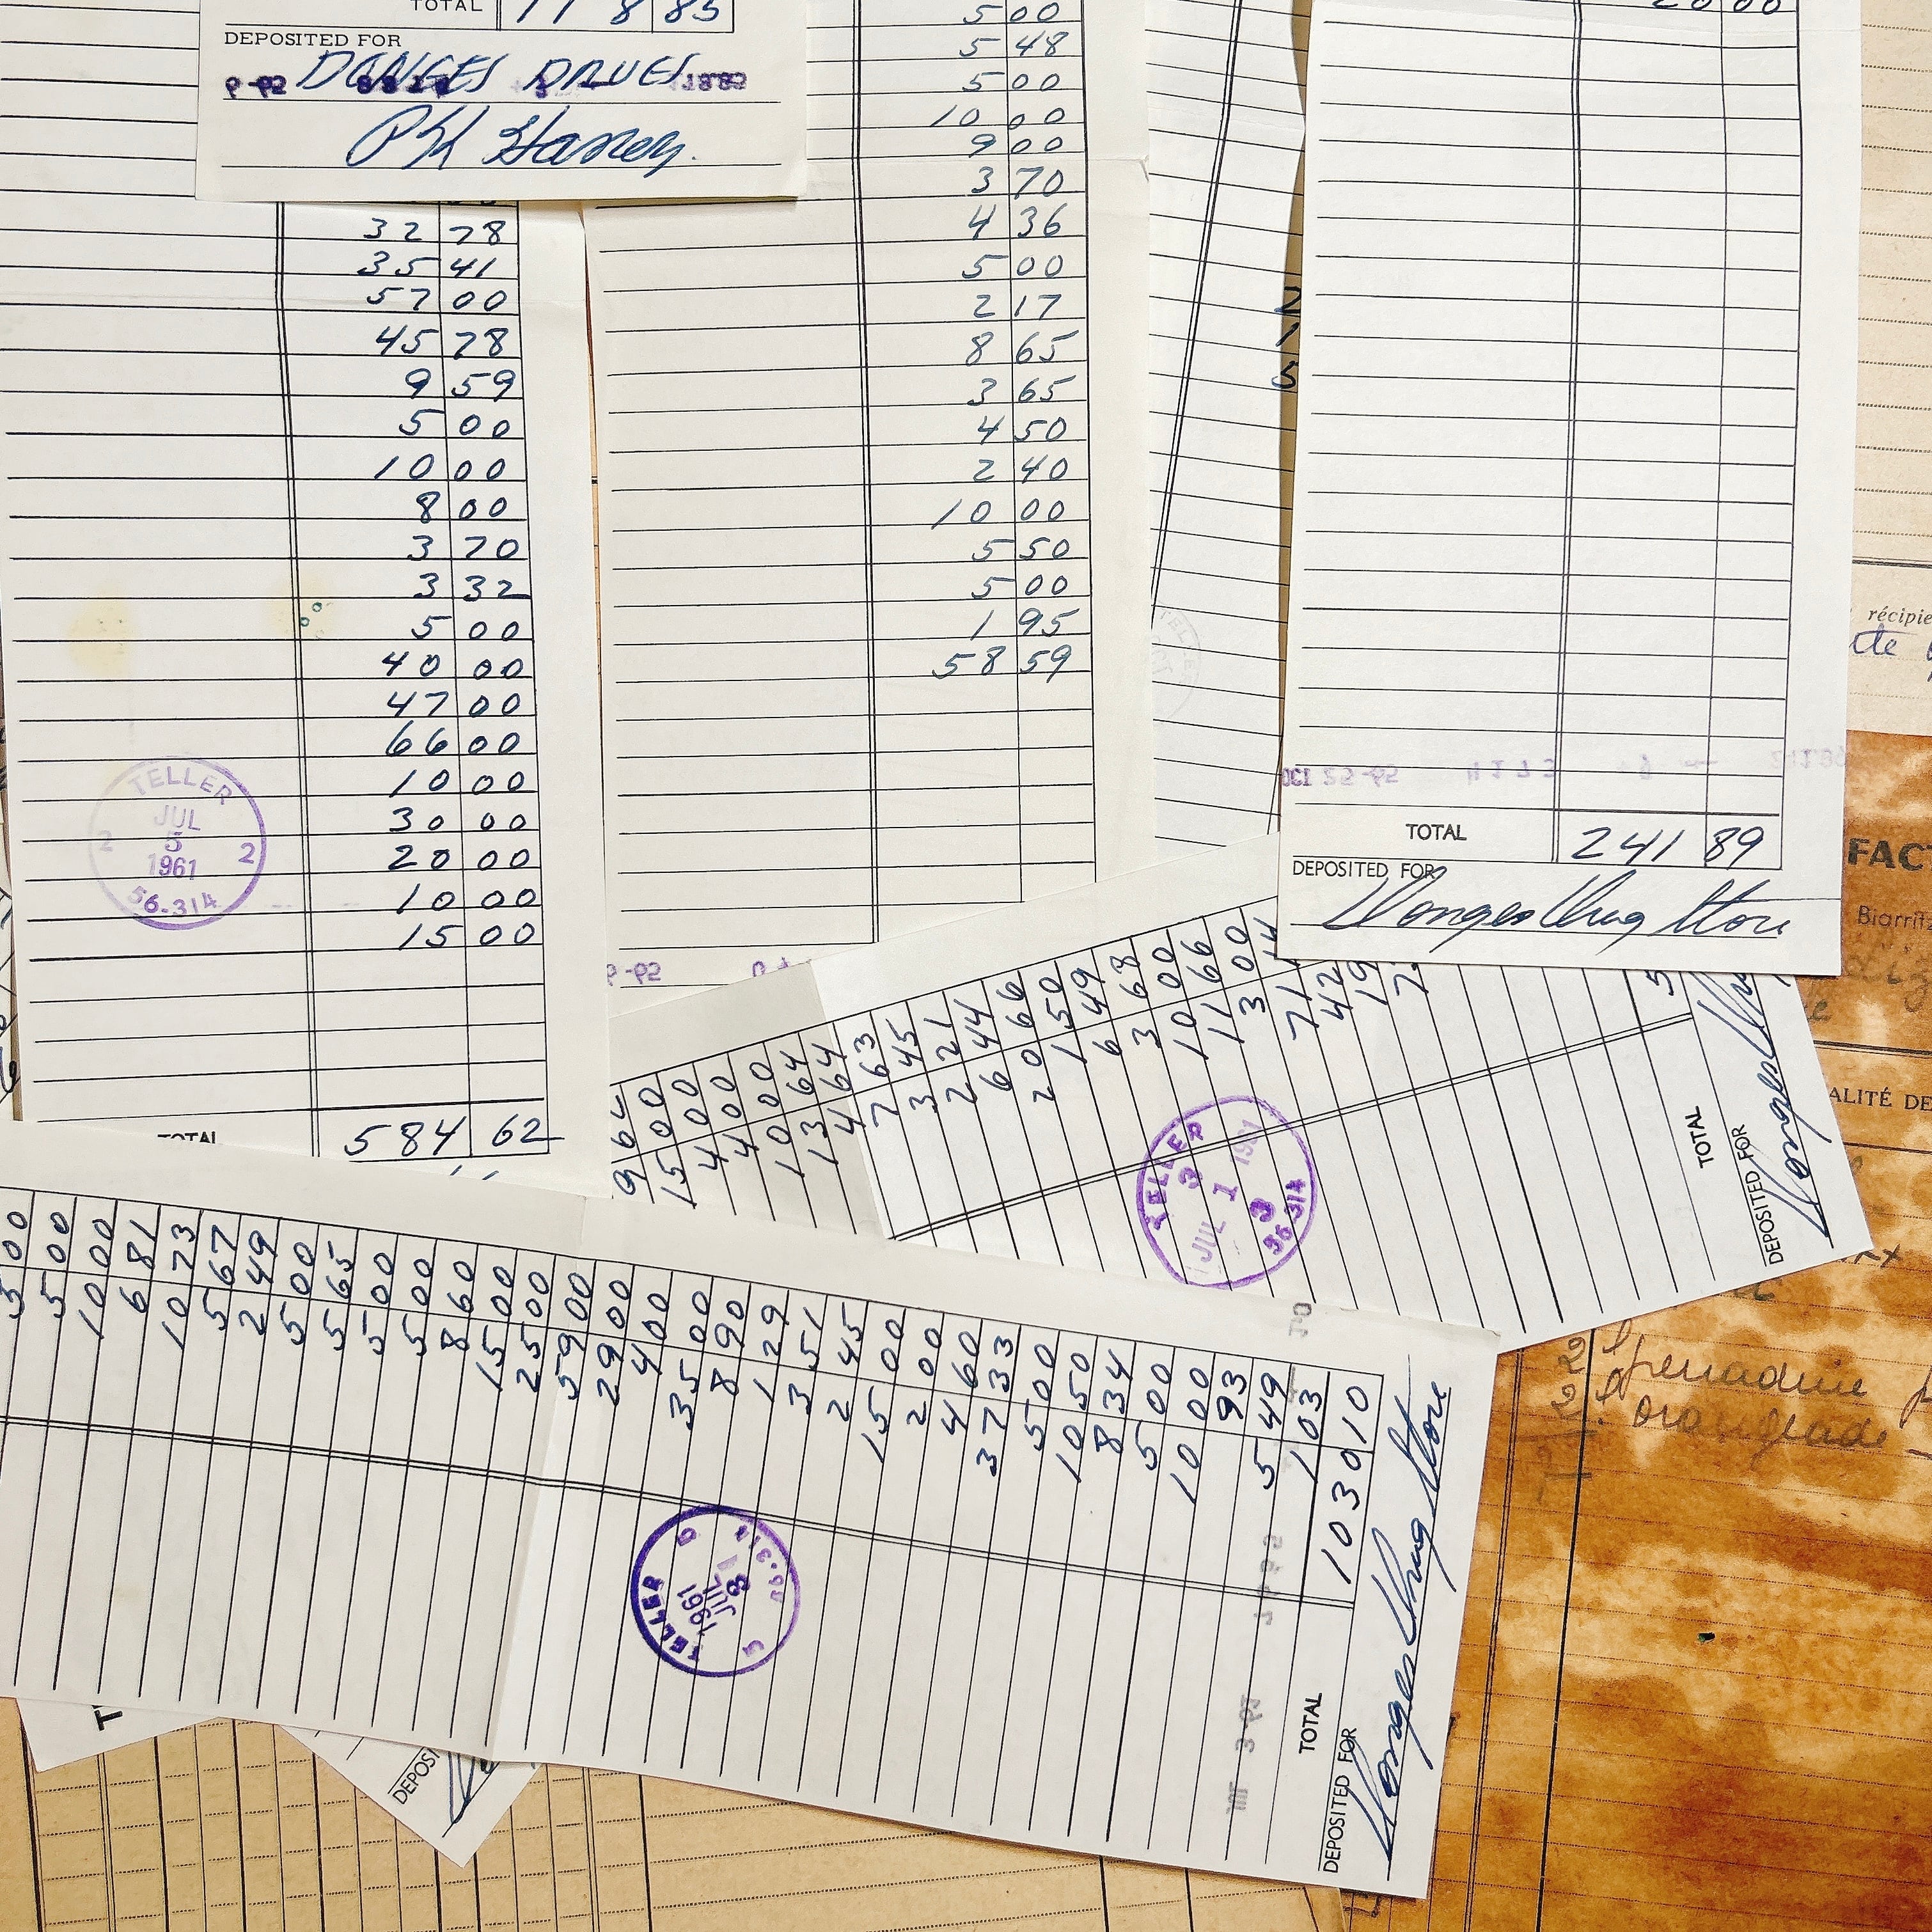 TOTAL 118 85
DEPOSITED FOR
DONGES DRUGS
32 78
35 41
57 00
45 78
9 59
5 00
10 00
8 00
3 70
3 32
5 00
40 00
47 00
66 00
10 00
30 00
20 00
10 00
15 00
TELLER
JUL
5
1961
2 2
56-314
TOTAL 584 62
5 00
5 48
5 00
10 00
9 00
3 70
4 36
5 00
2 17
8 65
3 65
4 50
2 40
10 00
5 50
5 00
1 95
58 59
20 00
OCT 25-62
TOTAL 241 89
DEPOSITED FOR
Donges Drug Store
15 00
4 00
4 00
10 00
13 64
4 64
7 63
3 45
2 21
6 44
20 66
1 50
6 49
3 68
10 00
11 66
3 00
71
42
19
7
5
TELLER
3
JUL 1 1961
3
56-314
TOTAL
DEPOSITED FOR
Donges
5 00
5 00
10 00
6 81
10 73
5 67
2 49
5 00
5 65
5 00
5 00
8 60
15 00
25 00
59 00
29 00
4 00
35 00
8 90
1 29
3 51
2 45
15 00
2 00
4 60
37 33
5 00
10 50
8 34
5 00
10 00
93
5 49
1 03
TELLER
JUL
1961
TOTAL 1030 10
DEPOSITED FOR
Donges Drug Store
DEPOSI
récipie
FACT
Biarritz
ALITÉ DE
2 l grenadine
2 l orangeade